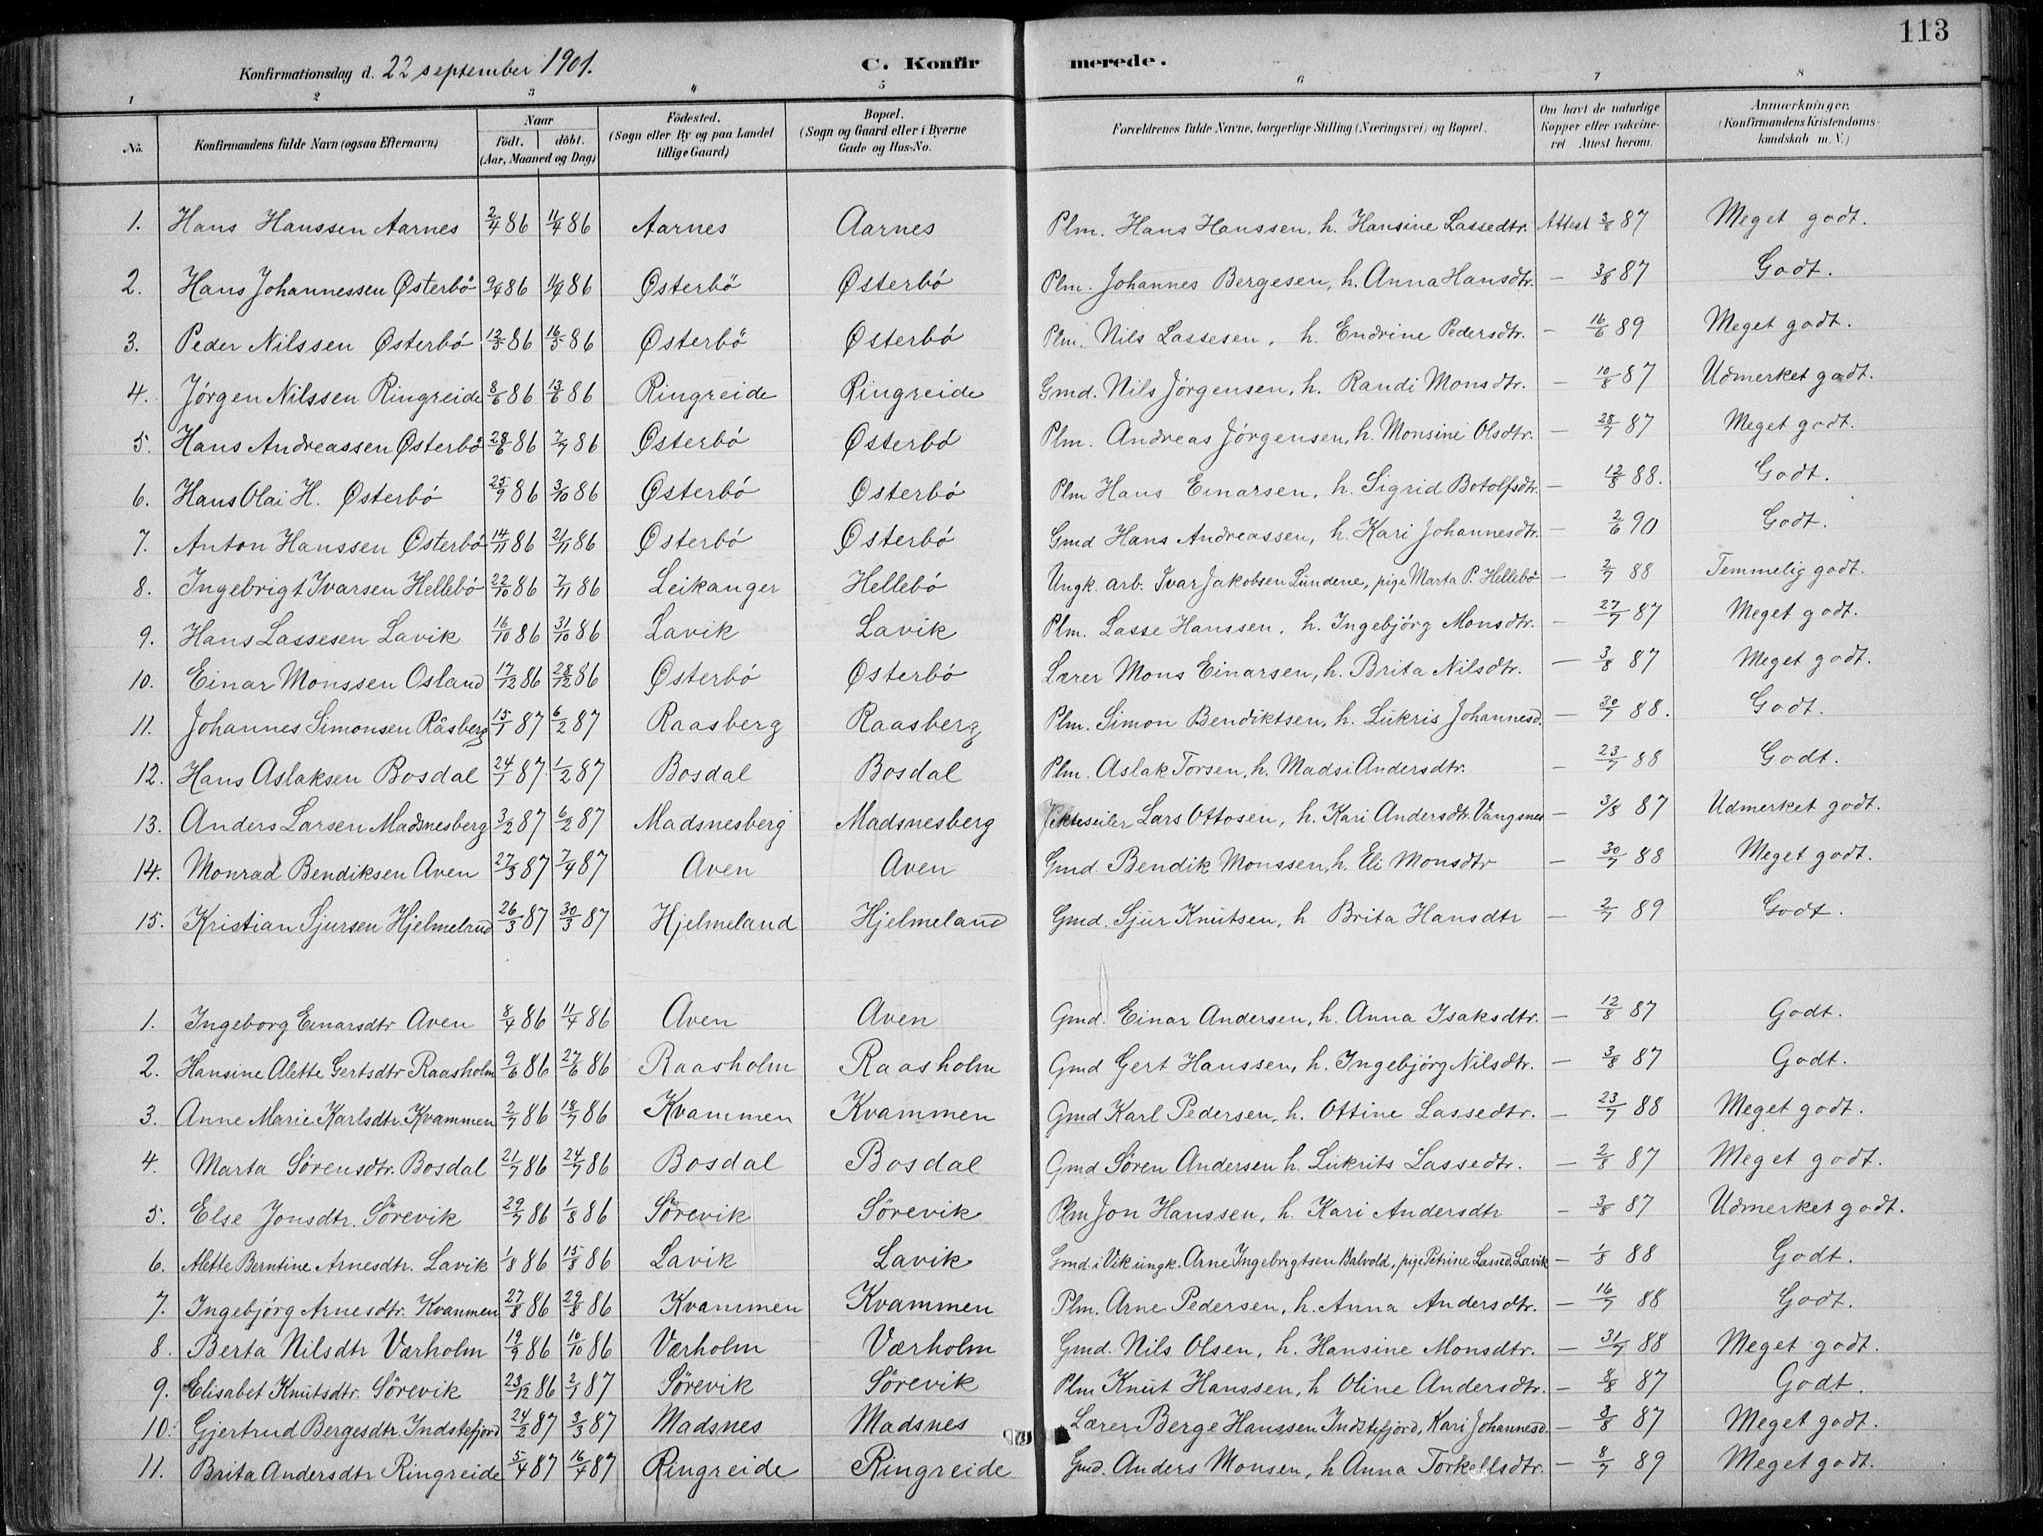 113
Konfirmationsdag d. 22 september 1901. C. Konfirmerede.
1 2 3 4 5 6 7 8
No. Konfirmandens fulde Navn (ogsaa Efternavn) Naar födt. döbt. (Aar, Maaned og Dag) Födested. (Sogn eller By og paa Landet tillige Gaard) Bopæl. (Sogn og Gaard eller i Byerne Gade og Hus-No. Forældrenes fulde Navne, borgerlige Stilling (Næringsvei) og Bopæl. Om havt de naturlige Kopper eller vakcineret Attest herom. Anmærkninger. (Konfirmandens Kristendomskundskab m. V.)
1. Hans Hanssen Aarnes 2/4 86 11/4 86 Aarnes Aarnes Plm. Hans Hanssen, h. Hansine Lassedtr. Attest 3/8 87 Meget godt.
2. Hans Johannessen Østerbö 9/4 86 11/4 86 Østerbö Østerbö Plm. Johannes Bergesen, h. Anna Hansdtr. — 3/8 87 Godt.
3. Peder Nilssen Østerbö 12/5 86 16/5 86 Østerbö Østerbö Plm. Nils Lassesen, h. Endrine Pedersdtr. — 16/6 89 Meget godt.
4. Jörgen Nilssen Ringreide 8/6 86 13/6 86 Ringreide Ringreide Gmd. Nils Jörgensen, h. Randi Monsdtr. — 10/8 87 Udmerket godt.
5. Hans Andreassen Østerbö 28/6 86 2/7 86 Østerbö Østerbö Plm. Andreas Jörgensen, h. Monsine Olsdtr. — 28/7 87 Meget godt.
6. Hans Olai H. Østerbö 25/9 86 3/10 86 Østerbö Østerbö Plm Hans Einarsen, h. Sigrid Botolfsdtr. — 12/8 88. Godt.
7. Anton Hanssen Østerbö 14/11 86 21/11 86 Østerbö Østerbö Gmd Hans Andreassen, h. Kari Johannesdtr. — 2/6 90 Godt.
8. Ingebrigt Ivarsen Hellebö 22/10 86 7/11 86 Leikanger Hellebö Ungk. arb. Ivar Jakobsen Lundene, pige Marta P. Hellebö — 2/7 88 Temmelig godt.
9. Hans Lassesen Lavik 16/10 86 31/10 86 Lavik Lavik Plm. Lasse Hanssen, h. Ingebjörg Monsdtr. — 27/7 87 Meget godt.
10. Einar Monssen Osland 17/12 86 28/12 86 Østerbö Østerbö Lærer Mons Einarsen, h. Brita Nilsdtr. — 3/8 87 Meget godt.
11. Johannes Simonsen Råsberg 15/1 87 6/2 87 Raasberg Raasberg Plm. Simon Bendiktsen, h. Lukris Johannesd. — 30/7 88. Godt.
12. Hans Aslaksen Bosdal 24/1 87 1/2 87 Bosdal Bosdal Plm. Aslak Torsen, h. Madsi Andersdtr. — 23/7 88 Godt.
13. Anders Larsen Madsnesberg 3/2 87 6/2 87 Madsnesberg Madsnesberg Jekteseiler Lars Ottosen, h. Kari Andersdtr. Vangsnes — 3/8 87 Udmerket godt.
14. Monrad Bendiksen Aven 27/3 87 7/4 87 Aven Aven Gmd. Bendik Monssen, h. Eli Monsdtr — 30/7 88 Meget godt.
15. Kristian Sjursen Hjelmeland 26/3 87 30/3 87 Hjelmeland Hjelmeland Gmd. Sjur Knutsen, h Brita Hansdtr — 2/7 89 Godt.
1. Ingeborg Einarsdtr Aven 8/4 86 11/4 86 Aven Aven Gmd. Einar Andersen, h. Anna Isaksdtr. — 12/8 87 Godt.
2. Hansine Alette Gertsdtr Raasholm 9/6 86 27/6 86 Raasholm Raasholm Gmd Gert Hanssen, h. Ingebjörg Nilsdtr. — 3/8 87 Godt.
3. Anne Marie Karlsdtr. Kvammen 2/7 86 18/7 86 Kvammen Kvammen Gmd Karl Pedersen, h. Ottine Lassedtr. — 23/7 88 Meget godt.
4. Marta Sörensdtr. Bosdal 21/7 86 24/7 86 Bosdal Bosdal Gmd Sören Andersen h. Lukrits Lassedtr. — 2/8 87 Meget godt.
5. Else Jonsdtr. Sörevik 29/7 86 1/8 86 Sörevik Sörevik Plm Jon Hanssen, h. Kari Andersdtr — 3/8 87 Udmerket godt.
6. Alette Berntine Arnesdtr. Lavik 1/8 86 15/8 86 Lavik Lavik Gmd i Vik ungk. Arne Ingebrigtsen Balvold, pige Petrine Lassed. Lavik — 1/8 88 Godt.
7. Ingebjörg Arnesdtr. Kvammen 27/8 86 29/8 86 Kvammen Kvammen Plm. Arne Pedersen, h. Anna Andersdtr. — 16/7 88 Godt.
8. Berta Nilsdtr Værholm 19/9 86 10/10 86 Værholm Værholm Gmd. Nils Olsen, h. Hansine Monsdtr. — 31/7 88 Meget godt.
9. Elisabet Knutsdtr. Sörevik 23/12 86 2/1 87 Sörevik Sörevik Plm Knut Hanssen, h Oline Andersdtr. — 8/8 87 Godt.
10. Gjertrud Bergesdtr Indstefjord 24/2 87 3/3 87 Madsnes Madsnes Lærer Berge Hanssen Indstefjord, Kari Johannesd. — 3/8 87 Meget godt.
11. Brita Andersdtr Ringreide 5/4 87 16/4 87 Ringreide Ringreide Gmd. Anders Monsen, h Anna Torkellsdtr. — 8/7 89 Meget godt.